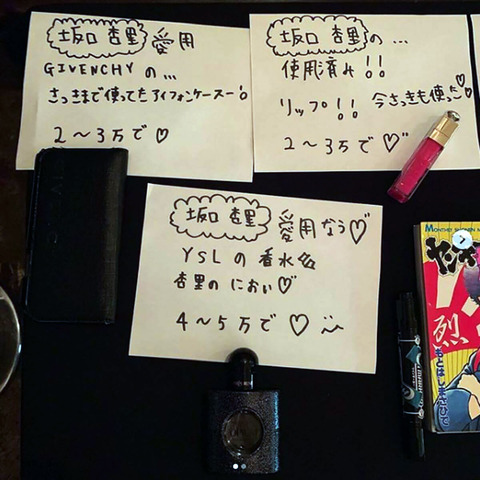 坂口 杏里 愛用
GIVENCHYの…
さっきまで使ってたアイフォンケースー!
2〜3万で♡
坂口 杏里の…
使用済み!!
リップ!! 今さっきも使った♡
2〜3万で♡
坂口 杏里 愛用なう♡
YSLの香水
杏里のにおい♡
4〜5万で♡
MONTHLY SHONEN M
烈